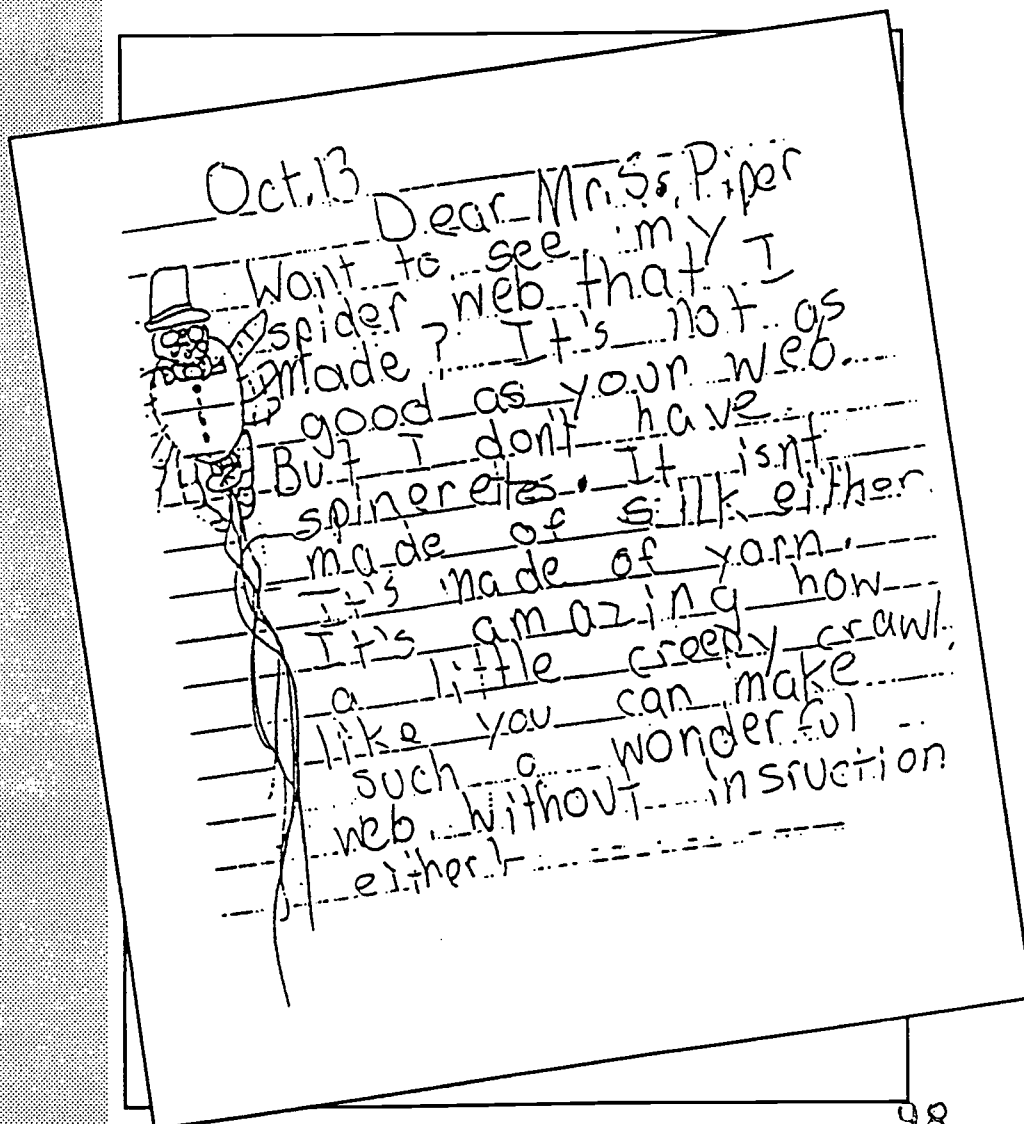 Oct. 13
Dear Mr. Ss. Piper
Want to see my
spider web that I
made? It's not as
good as your web.
But I dont have
spinerettes. It isnt
made of silk either
It's made of yarn.
It's amazing how
a little creepy crawl
like you can make
such a wonderful
web. Without insruction
either!
98